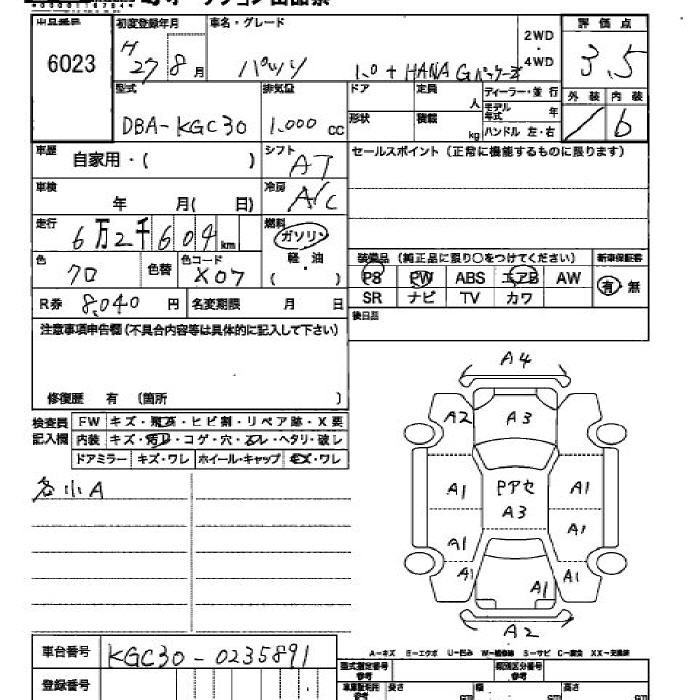 6023
初度登録年月
H
27 8 月
車名・グレード
パッソ 1.0 + HANA Gパッケージ
2WD
・
4WD
評価点
3.5
型式
DBA-KGC30
排気量
1.000 cc
ドア
定員
人
ディーラー・並行
形状
積載
kg
モデル年式
年
ハンドル 左・右
外装
内装
/
b
車歴
自家用・( )
シフト
AT
セールスポイント(正常に機能するものに限ります)
車検
年 月( 日)
冷房
A/C
走行
6万2千604km
燃料
ガソリン
軽・油
( )
色
クロ
色替
色コード
X07
装備品(純正品に限り○をつけてください)
新車保証書
PS PW ABS エアB AW
有・無
SR ナビ TV カワ
R券 8,040 円
名変期限 月 日
後日品
注意事項申告欄(不具合内容等は具体的に記入して下さい)
修復歴 有 (箇所 )
検査員
記入欄
FW キズ・飛石・ヒビ割・リペア跡・X要
内装 キズ・汚れ・コゲ・穴・スレ・ヘタリ・破レ
ドアミラー キズ・ワレ ホイール・キャップ キズ・ワレ
各小A
A4
A2
A3
A1
Pアセ
A3
A1
A1
A1
A1
A1
A1
A2
A-キズ E-エクボ U-凹み W-補修跡 S-サビ C-腐食 XX-交換済
車台番号
KGC30-0235891
登録番号
型式指定番号
類別区分番号
長さ
cm
幅
cm
高さ
cm